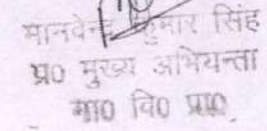 मानवेन्द्र कुमार सिंह
प्र० मुख्य अभियन्ता
गा० वि० प्रा०